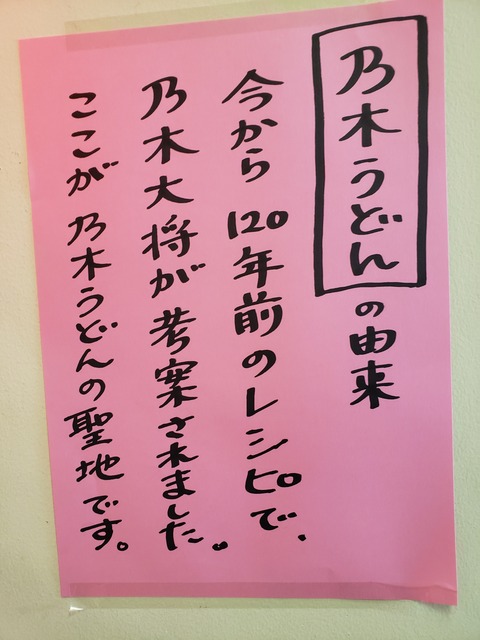 乃木うどんの由来
今から120年前のレシピで、
乃木大将が考案されました。
ここが乃木うどんの聖地です。